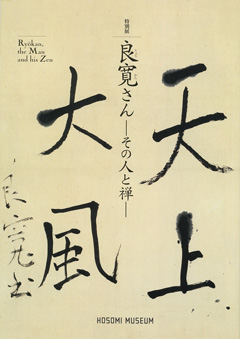 Ryōkan,
the Man
and his Zen
特別展
良寛さん―その人と禅―
天上
大風
良寛書
HOSOMI MUSEUM